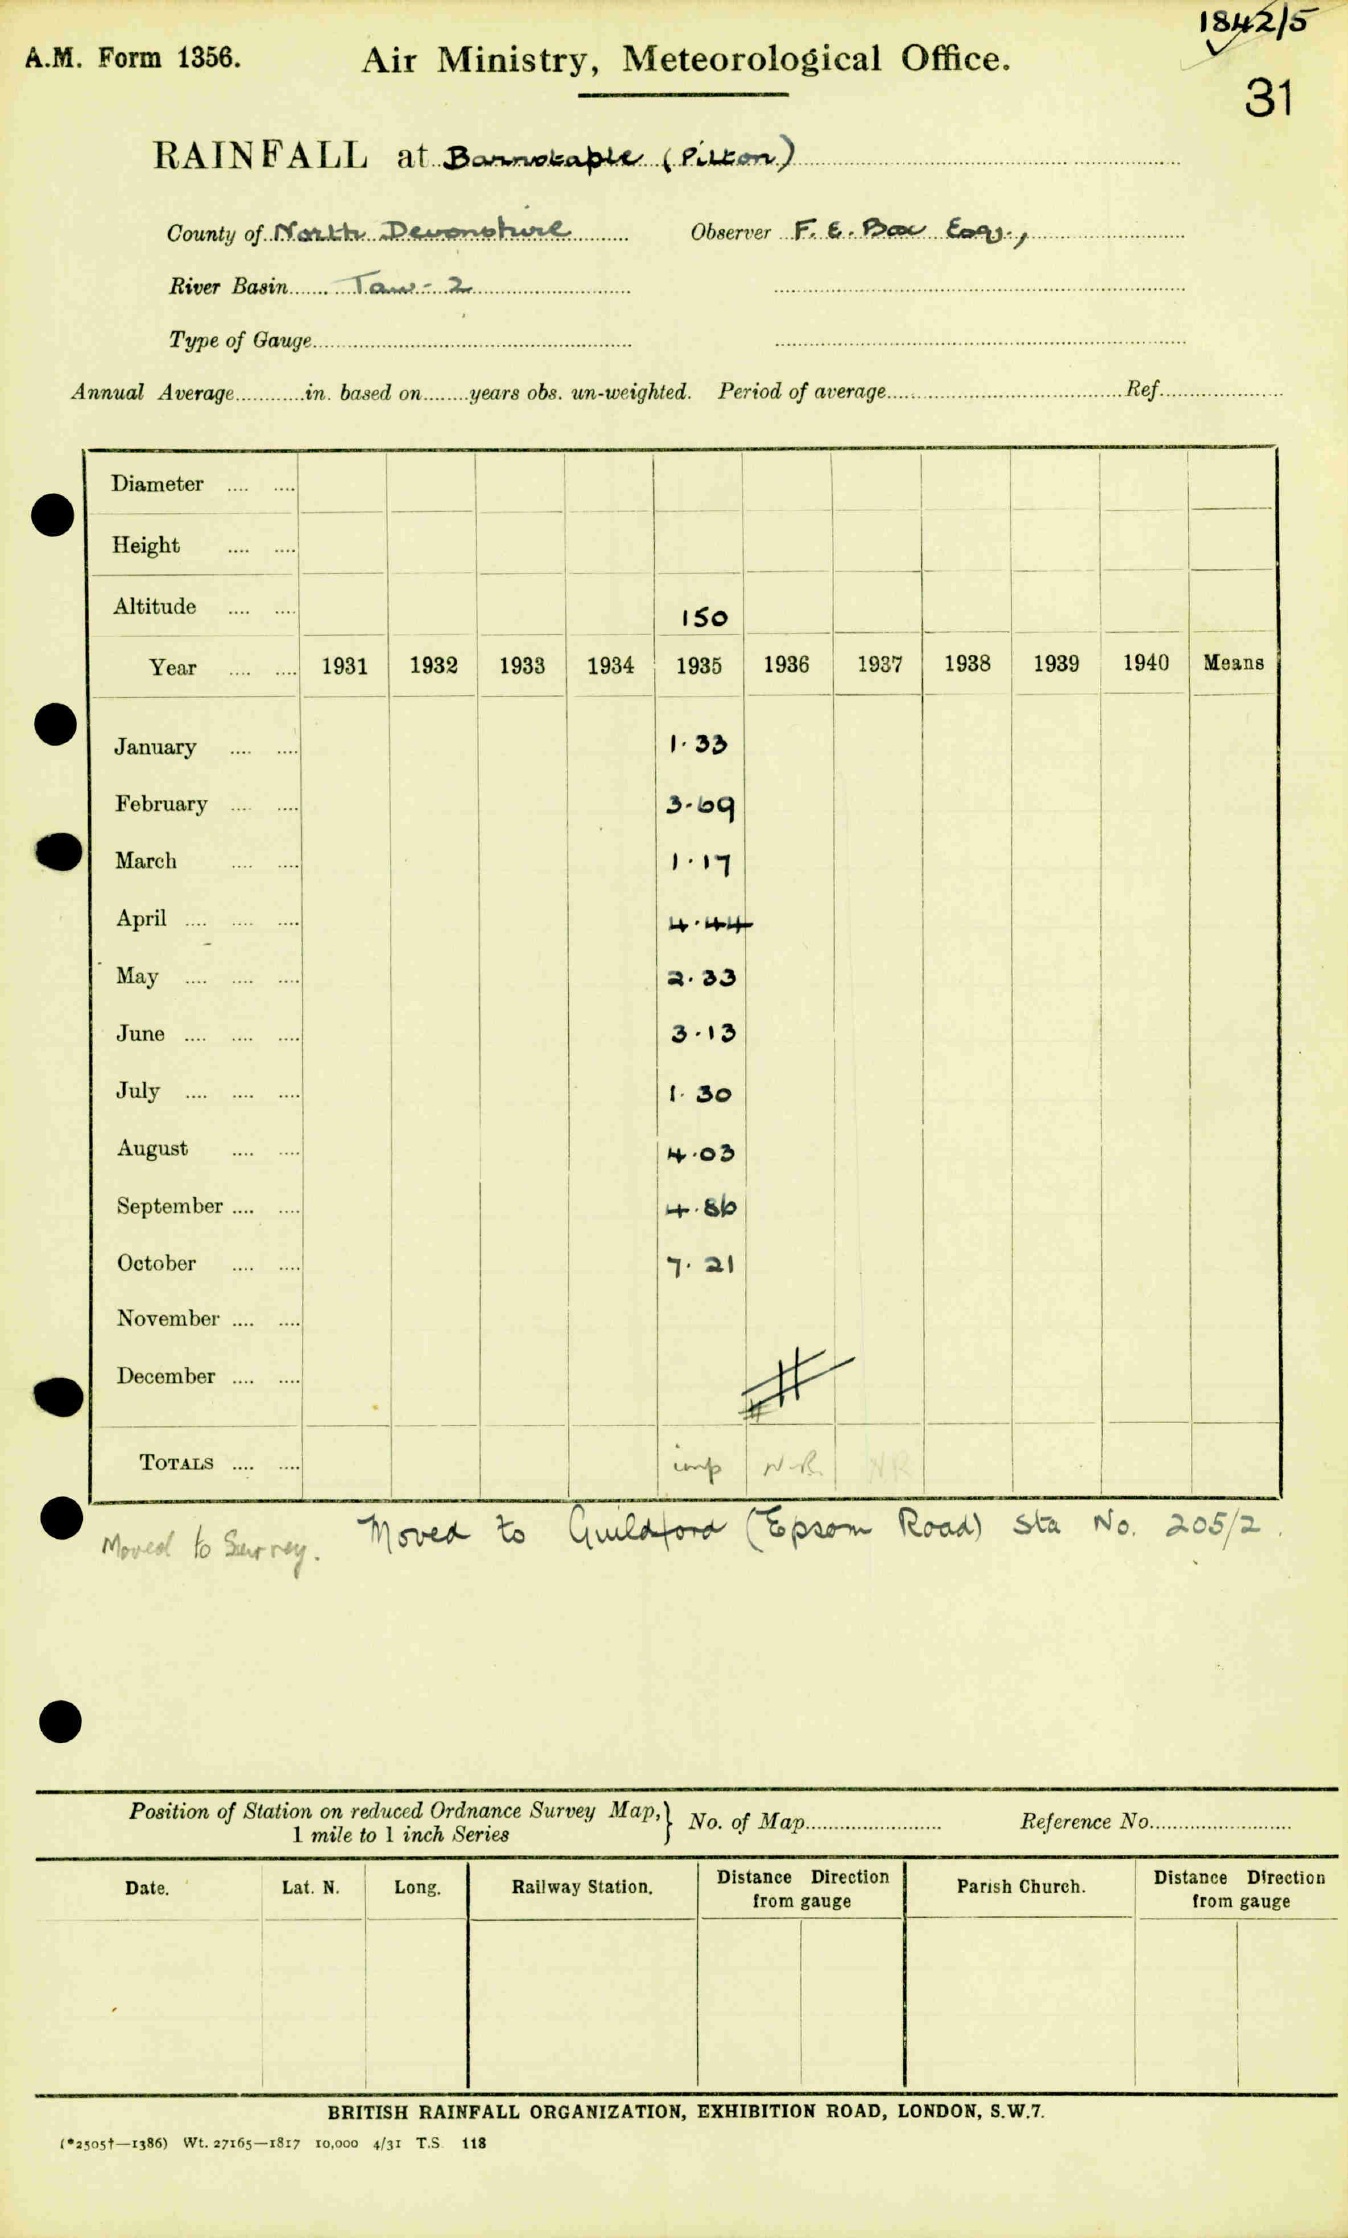 1842/5
A.M. Form 1356.
Air Ministry, Meteorological Office.
31
RAINFALL at Barnstaple (Pilton)
County of North Devonshire Observer F. E. Box Esq.,
River Basin Taw - 2
Type of Gauge
Annual Average in. based on years obs. un-weighted. Period of average Ref.
Diameter
Height
Altitude 150
Year 1931 1932 1933 1934 1935 1936 1937 1938 1939 1940 Means
January 1.33
February 3.69
March 1.17
April 4.44
May 2.33
June 3.13
July 1.30
August 4.03
September 4.86
October 7.21
November
December
TOTALS imp N.R. NR
Moved to Surrey. Moved to Guildford (Epsom Road) Sta No. 205/2.
Position of Station on reduced Ordnance Survey Map, } No. of Map Reference No.
1 mile to 1 inch Series
Date. Lat. N. Long. Railway Station. Distance Direction from gauge Parish Church. Distance Direction from gauge
BRITISH RAINFALL ORGANIZATION, EXHIBITION ROAD, LONDON, S.W.7.
(*2505†—1386) Wt. 27165—1817 10,000 4/31 T.S. 118